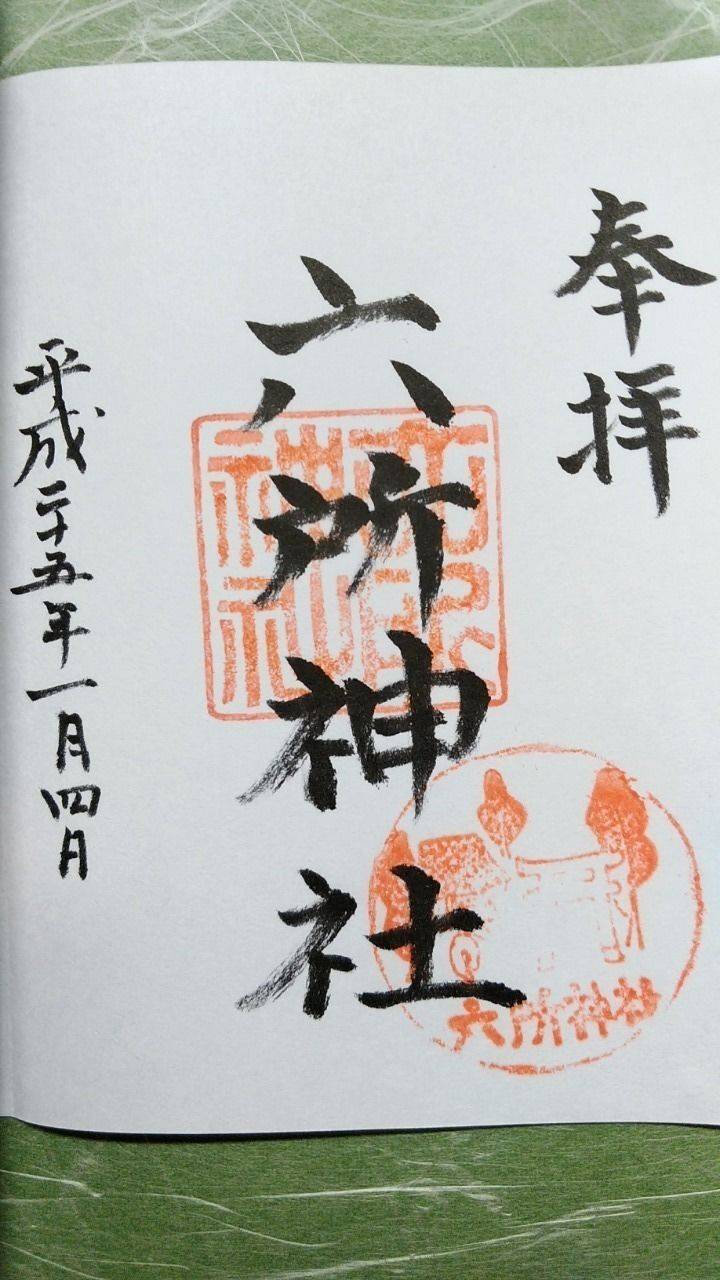 奉拝
六所神社
平成二十五年一月四日
六所神社